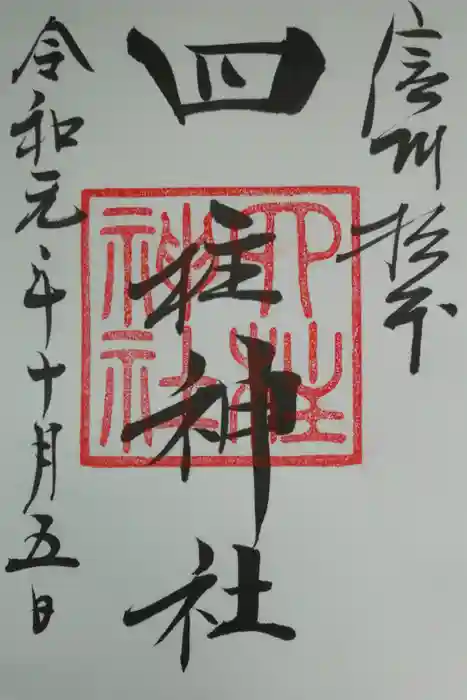 信州松本
四柱神社
四柱
神社
令和元年十月五日